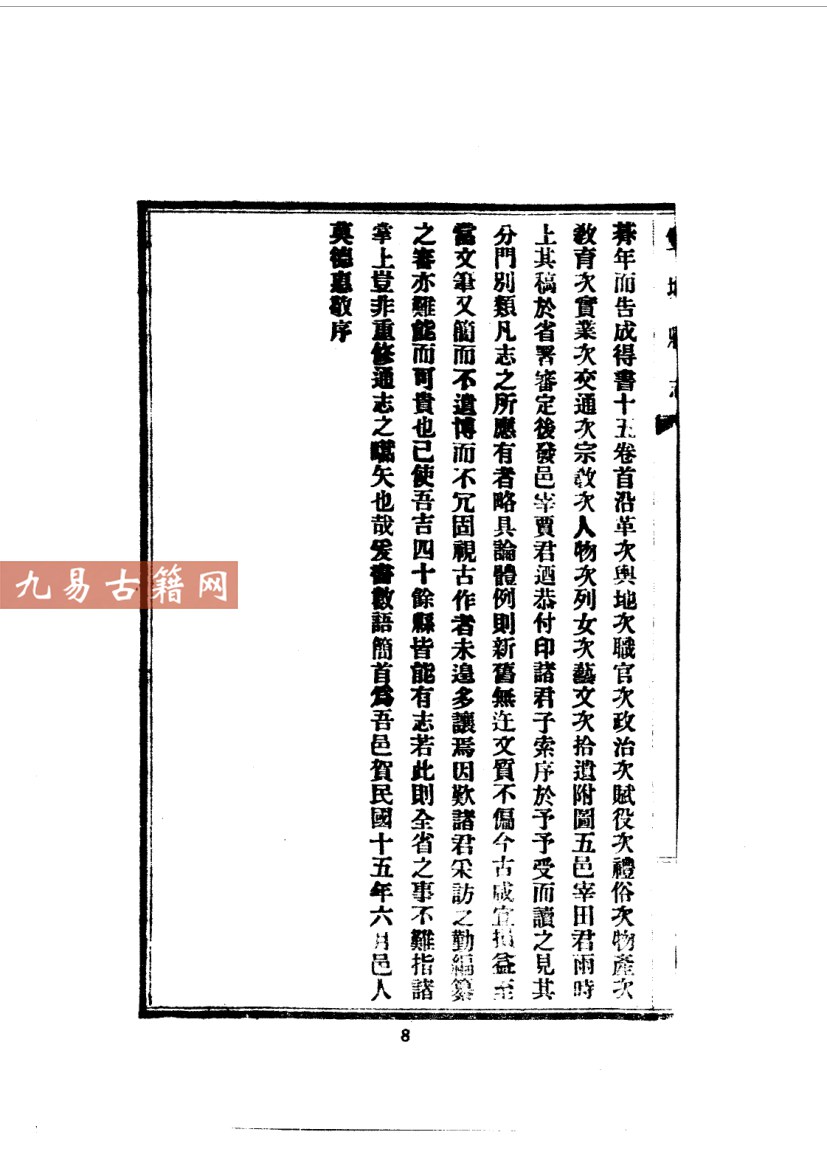 縣志
朞年而告成得書十五卷首沿革次輿地次職官次政治次賦役次禮俗次物產次
敎育次實業次交通次宗敎次人物次列女次藝文次拾遺附圖五邑宰田君雨時
上其稿於省署審定後發邑宰賈君迺恭付印諸君子索序於予予受而讀之見其
分門別類凡志之所應有者略具論體例則新舊無迕文質不偏今古咸宜損益至
當文筆又簡而不遺博而不冗固視古作者未遑多讓焉因歎諸君采訪之勤編纂
之審亦難能而可貴也已使吾吉四十餘縣皆能有志若此則全省之事不難指諸
掌上豈非重修通志之嚆矢也哉爰書數語簡首爲吾邑賀民國十五年六月邑人
莫德惠敬序
九易古籍网
8